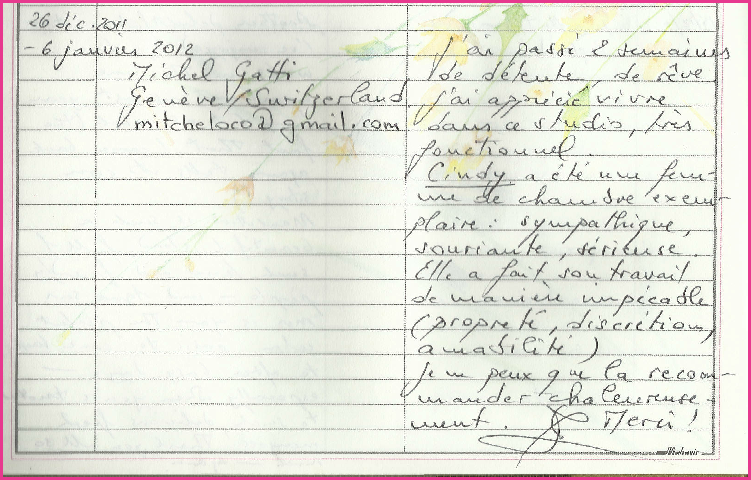 26 déc. 2011
- 6 janvier 2012
Michel Gatti
Genève / Switzerland
mitcheloco@gmail.com
J'ai passé 2 semaines
de détente de rêve
j'ai apprécié vivre
dans ce studio, très
fonctionnel
Cindy a été une fem-
me de chambre exem-
plaire : sympathique,
souriante, sérieuse.
Elle a fait son travail
de manière impécable
(propreté, discrétion,
amabilité)
Je ne peux que la recom-
mander chaleureuse-
ment. Merci !